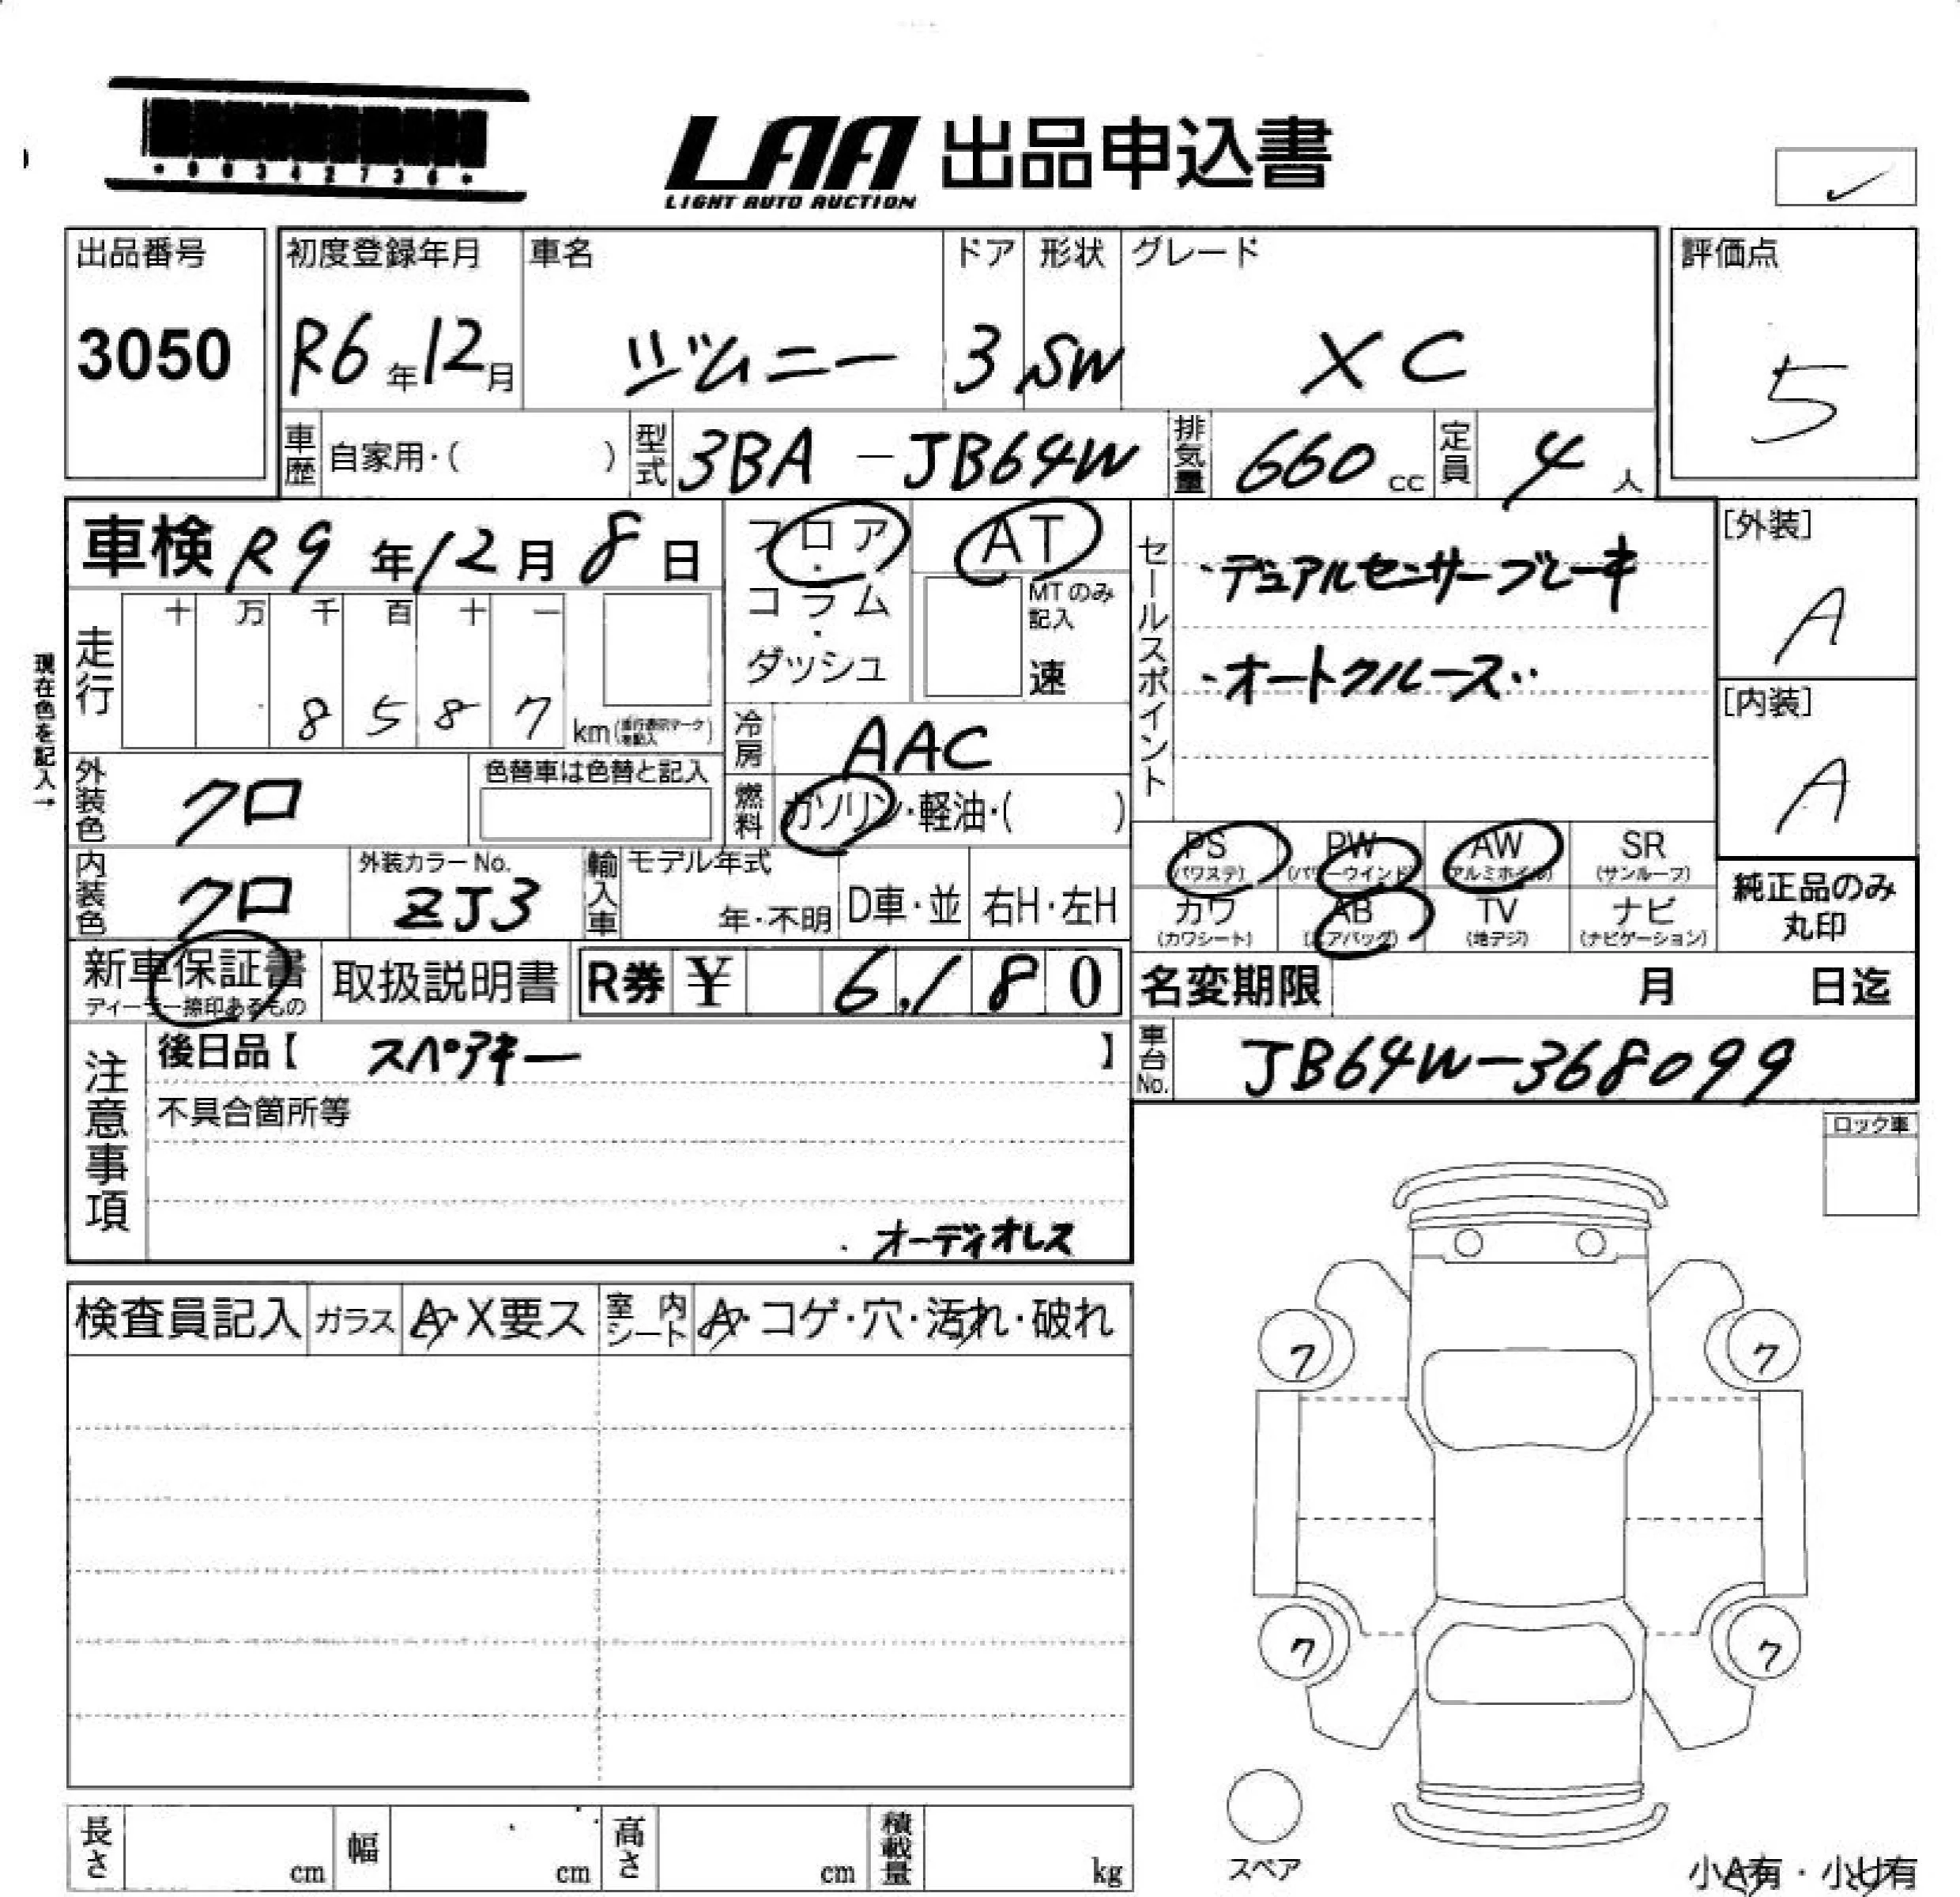 LAA 出品申込書
LIGHT AUTO AUCTION
出品番号
3050
初度登録年月
R6年12月
車名
ジムニー
ドア
3
形状
SW
グレード
XC
評価点
5
車歴 自家用・( )
型式 3BA-JB64W
排気量 660 cc
定員 4人
車検 R9年12月8日
フロア・コラム・ダッシュ
AT
MTのみ記入
速
セールスポイント
・デュアルセンサーブレーキ
・オートクルーズ
[外装]
A
[内装]
A
現在色を記入→
走行
十 万 千 百 十 一
8 5 8 7 km
冷房 AAC
燃料 ガソリン・軽油・( )
外装色 クロ
色替車は色替と記入
内装色 クロ
外装カラーNo.
ZJ3
輸入車
モデル年式
年・不明
D車・並
右H・左H
PS (パワステ)
PW (パワーウインド)
AW (アルミホイル)
SR (サンルーフ)
カワ (カワシート)
AB (エアバッグ)
TV (地デジ)
ナビ (ナビゲーション)
純正品のみ
丸印
新車保証書
取扱説明書
R券 ¥ 6,180
名変期限 月 日迄
注意事項
後日品【 スペアキー 】
不具合箇所等
オーディオレス
車台No. JB64W-368099
ロック車
検査員記入
ガラス A・X要ス
室内シート A・コゲ・穴・汚れ・破れ
フ
フ
フ
フ
スペア
長さ cm
幅 cm
高さ cm
積載量 kg
小A有・小U有